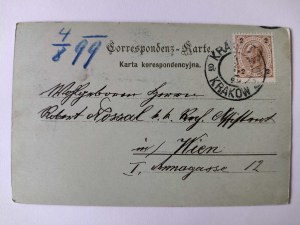 4/8 99
Correspondenz-Karte.
Karta korespondencyjna.
KRAKÓW
Wohlgeboren Herrn
Robert Nossal k. k.
in Wien
I. 12